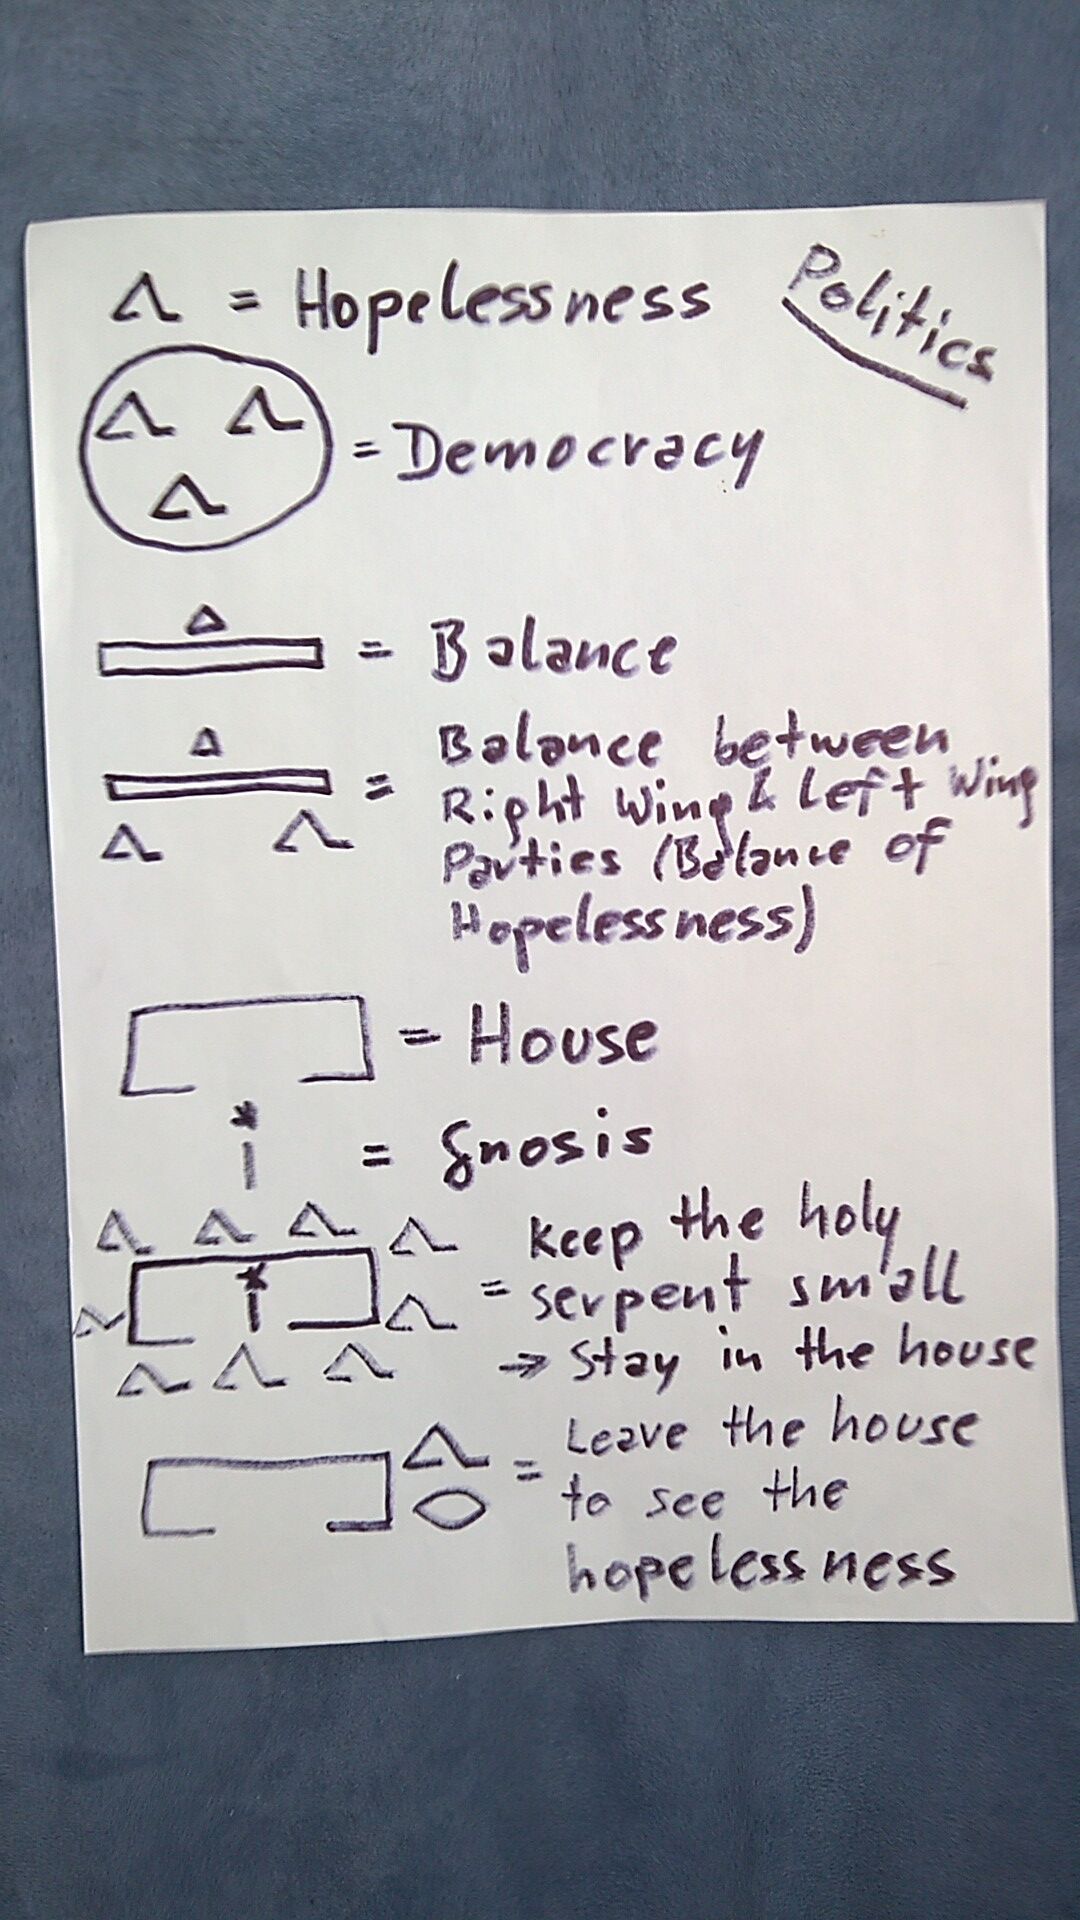 Politics
= Hopelessness
= Democracy
= Balance
= Balance between
Right Wing & Left Wing
Parties (Balance of
Hopelessness)
= House
= Gnosis
= keep the holy
serpent small
→ Stay in the house
= Leave the house
to see the
hopelessness